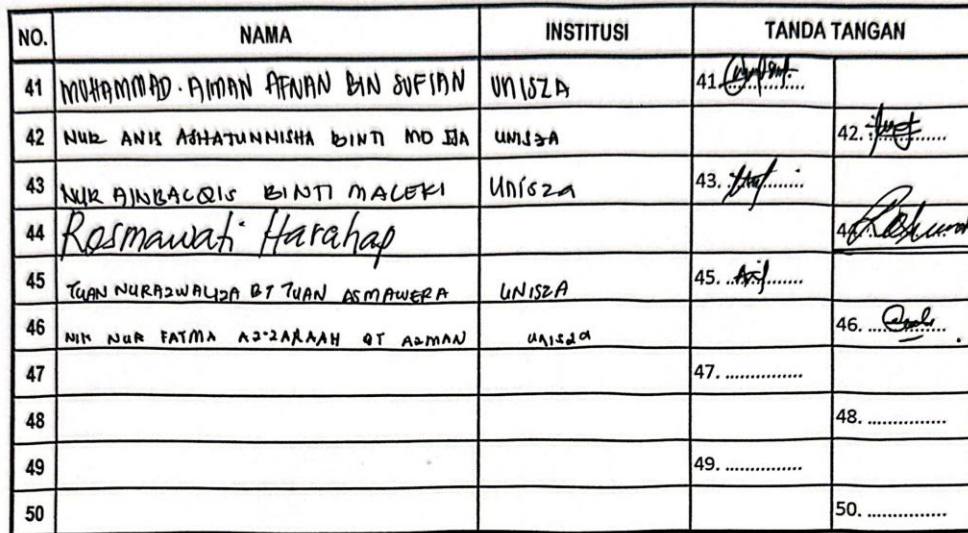 NO. NAMA INSTITUSI TANDA TANGAN
41 MUHAMMAD. AIMAN AFNAN BIN SUFIAN UNISZA 41.
42 NUR ANIS ASHATUNNISHA BINTI UNISZA 42.
43 NUR AINBALQIS BINTI MALEKI UNISZA 43.
44 Rosmawati Harahap 44.
45 TUAN NURAZWALIZA BT TUAN ASMAWERA UNISZA 45.
46 NIK NUR FATMA AZ-ZARAAH BT AZMAN UNISZA 46.
47 47. ...............
48 48. ...............
49 49. ...............
50 50. ...............